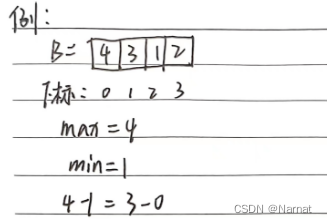 例:
B= 4 3 1 2
下标: 0 1 2 3
max=4
min=1
4-1=3-0
CSDN @Narnat